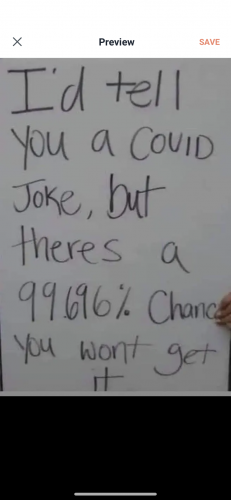 Preview
SAVE
I'd tell
you a COVID
JOKE, but
theres a
99.696% Chance
you wont get
it